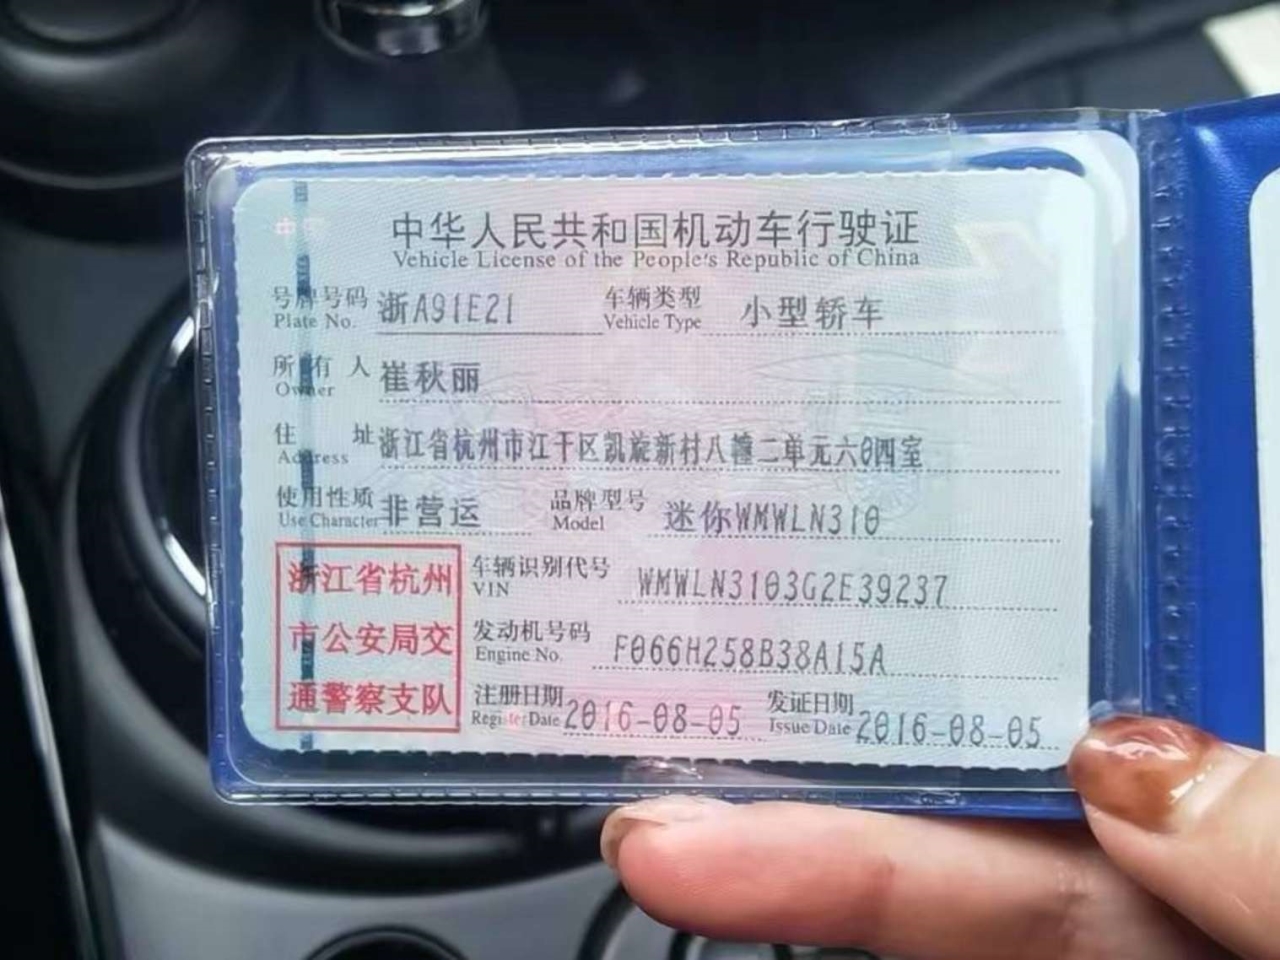 中华人民共和国机动车行驶证
Vehicle License of the People's Republic of China
号牌号码 浙A91E21 车辆类型 小型轿车
Plate No. Vehicle Type
所有人 崔秋丽
Owner
住址 浙江省杭州市江干区凯旋新村八幢二单元六0四室
Address
使用性质 非营运 品牌型号 迷你WMWLN310
Use Character Model
浙江省杭州
市公安局交
通警察支队
车辆识别代号 WMWLN3103G2E39237
VIN
发动机号码 F066H258B38A15A
Engine No.
注册日期 2016-08-05 发证日期 2016-08-05
Register Date Issue Date